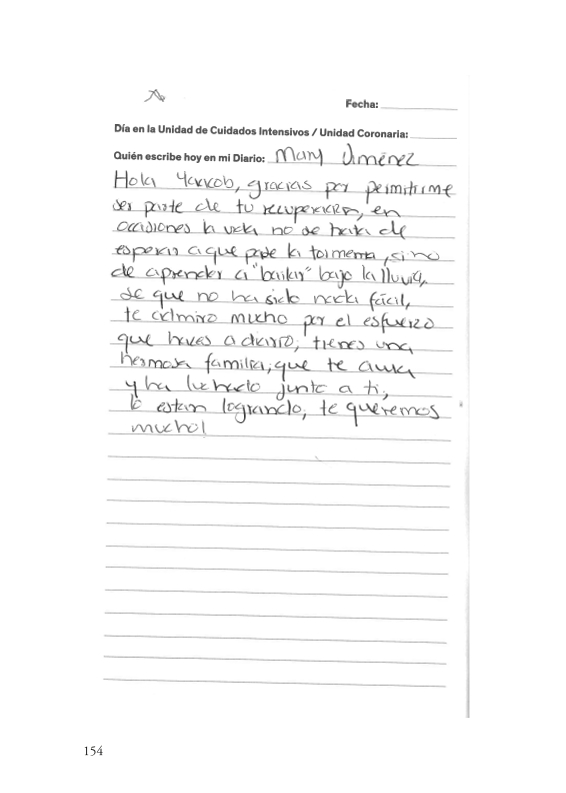 Fecha:
Día en la Unidad de Cuidados Intensivos / Unidad Coronaria:
Quién escribe hoy en mi Diario: Mary Jiménez
Hola Yaxkob, gracias por permitirme
ser parte de tu recuperación, en
occisiones la vida no se trata de
esperar a que pase la tormenta, sino
de aprender a "bailar" bajo la lluvia,
se que no ha sido nada fácil,
te admiro mucho por el esfuerzo
que haces a diario, tienes una
hermosa familia, que te ama
y ha luchado junto a ti,
lo estan logrando, te queremos
mucho!
154